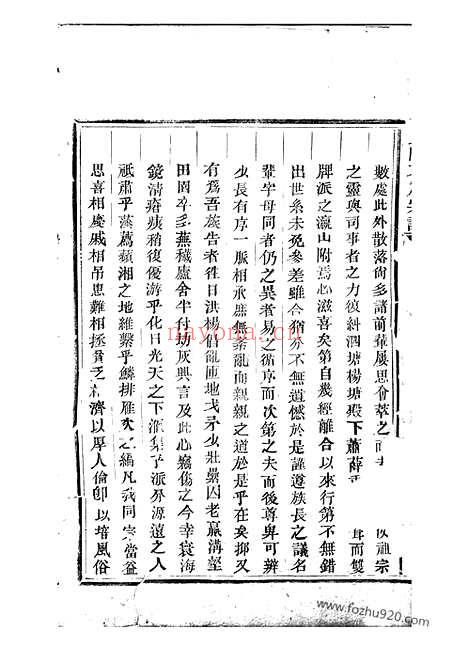 數處此外散落尚多諸前輩屢思會萃之 以祖宗
之靈與司事者之力復糾泗塘楊塘殿下蕭薛 而雙
牌派之瀛山附焉心滋喜矣第自幾經離合以來行第不無錯
出世系未免參差雖合猶分不無遺憾於是謹遵族長之議名
輩字母同者仍之異者易之循序而次第之夫而後尊卑可辨
少長有序一脈相承庶無紊亂而親親之道於是乎在矣抑又
有為吾族告者往日洪楊倡亂匝地戈矛少壯纍囚老羸溝壑
田園卒多蕪穢廬舍半付刼灰興言及此心竊傷之今幸寰海
鏡清瘡痍稍復優游乎化日光天之下 集乎派別源遠之人
祇肅乎蒸薦蘋湘之地維繫乎鱗排雁次之編凡我同宗當益
思喜相慶戚相弔患難相拯貧乏相濟以厚人倫卽以培風俗
nayona.cn
www.fozhu920.com